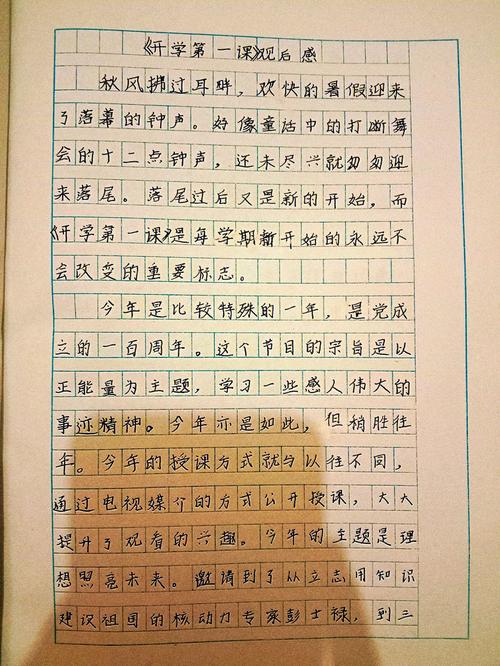 《开学第一课》观后感
秋风拂过耳畔，欢快的暑假迎来
了落幕的钟声。好像童话中的打断舞
会的十二点钟声，还未尽兴就匆匆迎
来落尾。落尾过后又是新的开始，而
《开学第一课》是每学期新开始的永远不
会改变的重要标志。
今年是比较特殊的一年，是党成
立的一百周年。这个节目的宗旨是以
正能量为主题，学习一些感人伟大的
事迹精神。今年亦是如此，但稍胜往
年。今年的授课方式就与以往不同，
通过电视媒介的方式公开授课，大大
提升了观看的兴趣。今年的主题是理
想照亮未来。邀请到了从立志用知识
建设祖国的核动力专家彭士禄，到三